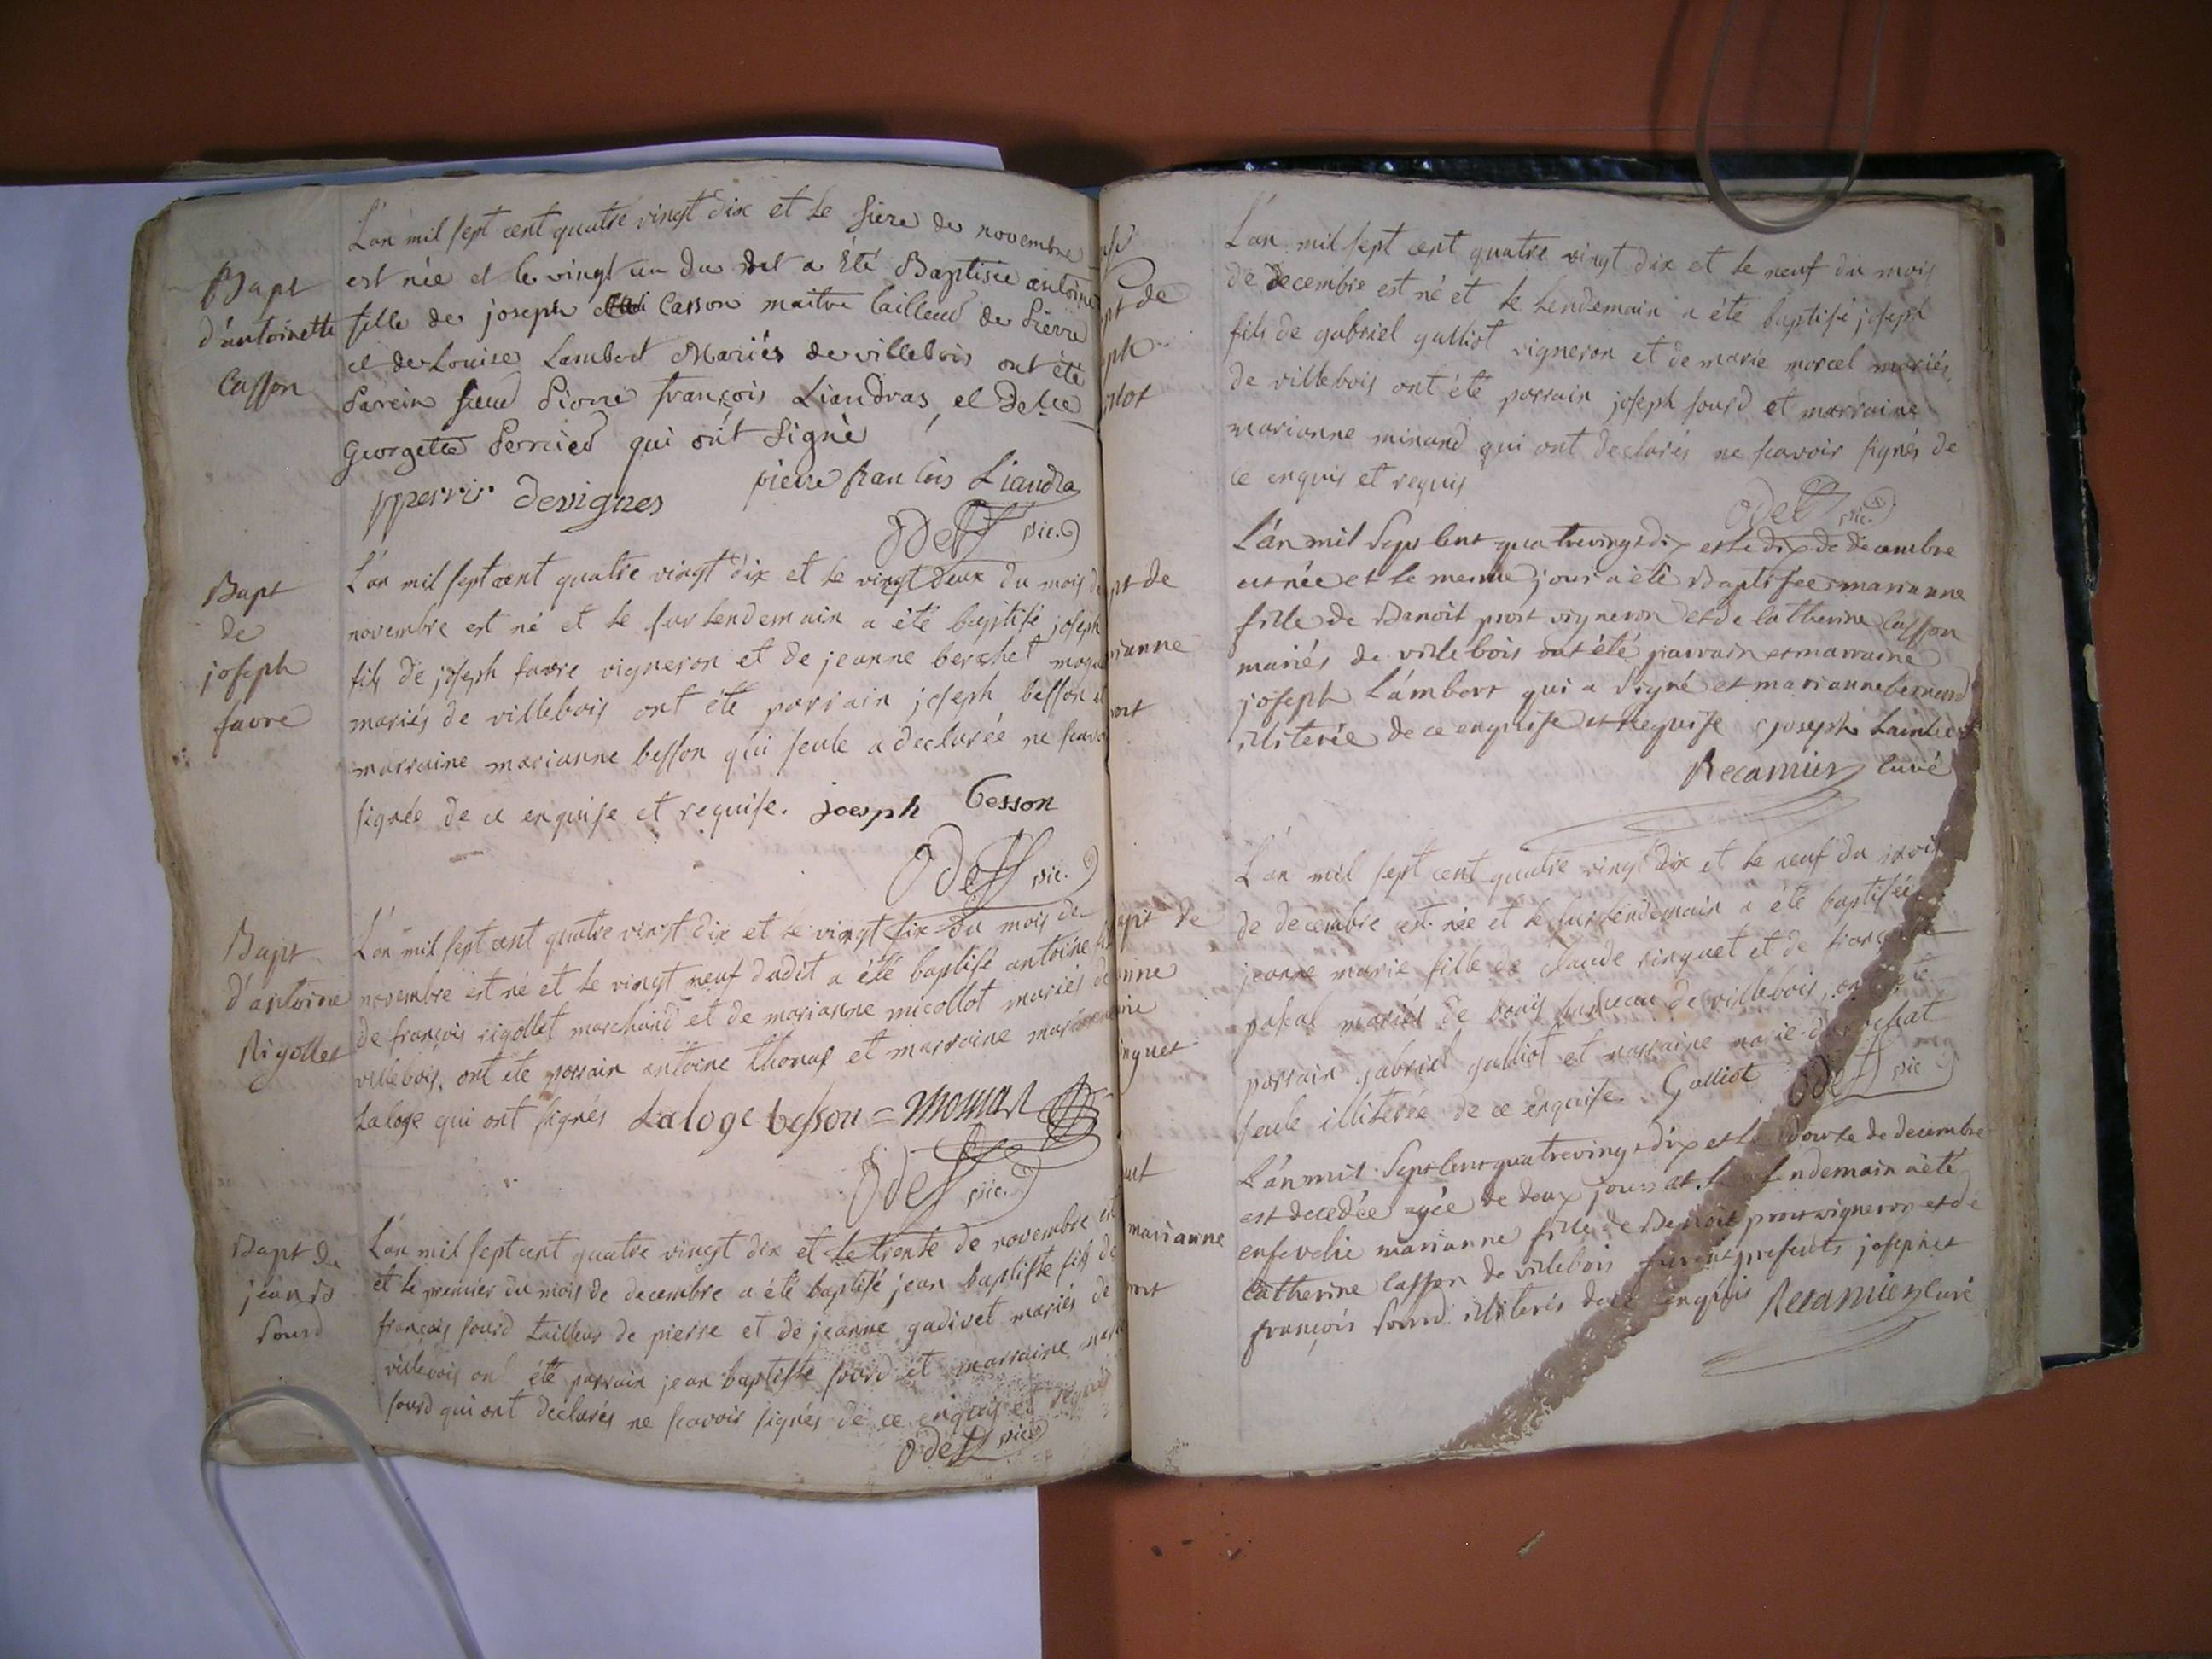 L'an mil sept cent quatre vingt dix et le size de novembre
est née et le vingt un du dit a été Baptisée antoinet
Bapt
d'antoinette
Casson
fille de joseph Casson maitre tailleur de Pierre
et de Louise Lambert Mariés de villebois ont été
Parein sieur Pierre françois Liandras et Delle
Georgette Perrier qui ont Signé
pperrir desvignes pierre francois Liandra
Odet vic.
Bapt
de
joseph
favre
L'an mil sept cent quatre vingt dix et le vingt deux du mois de
novembre est né et le surlendemain a été baptisé joseph
fils de joseph favre vigneron et de jeanne berchet
mariés de villebois ont été parrain joseph besson et
marraine marianne besson qui seule a declarée ne scavoi
signée de ce enquise et requise. joesph besson
Odet vic.
Bapt
d'antoine
Rigollet
L'an mil sept cent quatre vingt dix et le vingt six du mois de
novembre est né et le vingt neuf dudit a été baptisé antoine fils
de françois rigollet marchand et de marianne micollot mariés de
villebois, ont été parrain antoine thomas et marraine
Laloge qui ont signés Laloge besson = thomas
Odet vic.
Bapt de
jean bte
Sourd
L'an mil sept cent quatre vingt dix et le trente de novembre est
et le premier du mois de decembre a été baptisé jean baptiste fils de
françois sourd tailleur de pierre et de jeanne gadivet mariés de
villebois ont été parrain jean baptiste sourd et marraine
sourd qui ont declarés ne scavoir signés de ce enquis et requis
Odet vic
pt de
ph
llot
L'an mil sept cent quatre vingt dix et le neuf du mois
de decembre est né et le lendemain a été baptisé joseph
fils de gabriel galliot vigneron et de marie morcel mariés
de villebois ont été parrain joseph sourd et marraine
marianne minand qui ont declarés ne scavoir signés de
ce enquis et requis
Odet vic.
pt de
rianne
ort
L'an mil Sept Cent quatrevingt dix et le dix de decembre
est née et le meme jour a été Baptisée marianne
fille de Benoit prost vigneron et de Catherine Casson
mariés de villebois ont été parrain et marraine
joseph Lambert qui a Signé et marianne bernard
illiterée de ce enquise et Requise joseph Lambert
Recamier Curé
apt de
nne
rie
nguet
L'an mil sept cent quatre vingt dix et le neuf du mois
de decembre est née et le surlendemain a été baptisée
jeanne marie fille de claude ringuet et de françoise
pascal mariés de bouis hameau de villebois, ont été
parrain gabriel galliot et marraine marie
seule illiterée de ce enquise. Galliot Odet vic
marianne
L'an mil Sept Cent quatrevingt dix et le douze de decembre
est decedée agée de deux jours et le lendemain a été
ensevelie marianne fille de Benoit prost vigneron et de
Catherine Casson de villebois furent presents joseph et
françois Sourd illiterés de ce enquis Recamier Curé